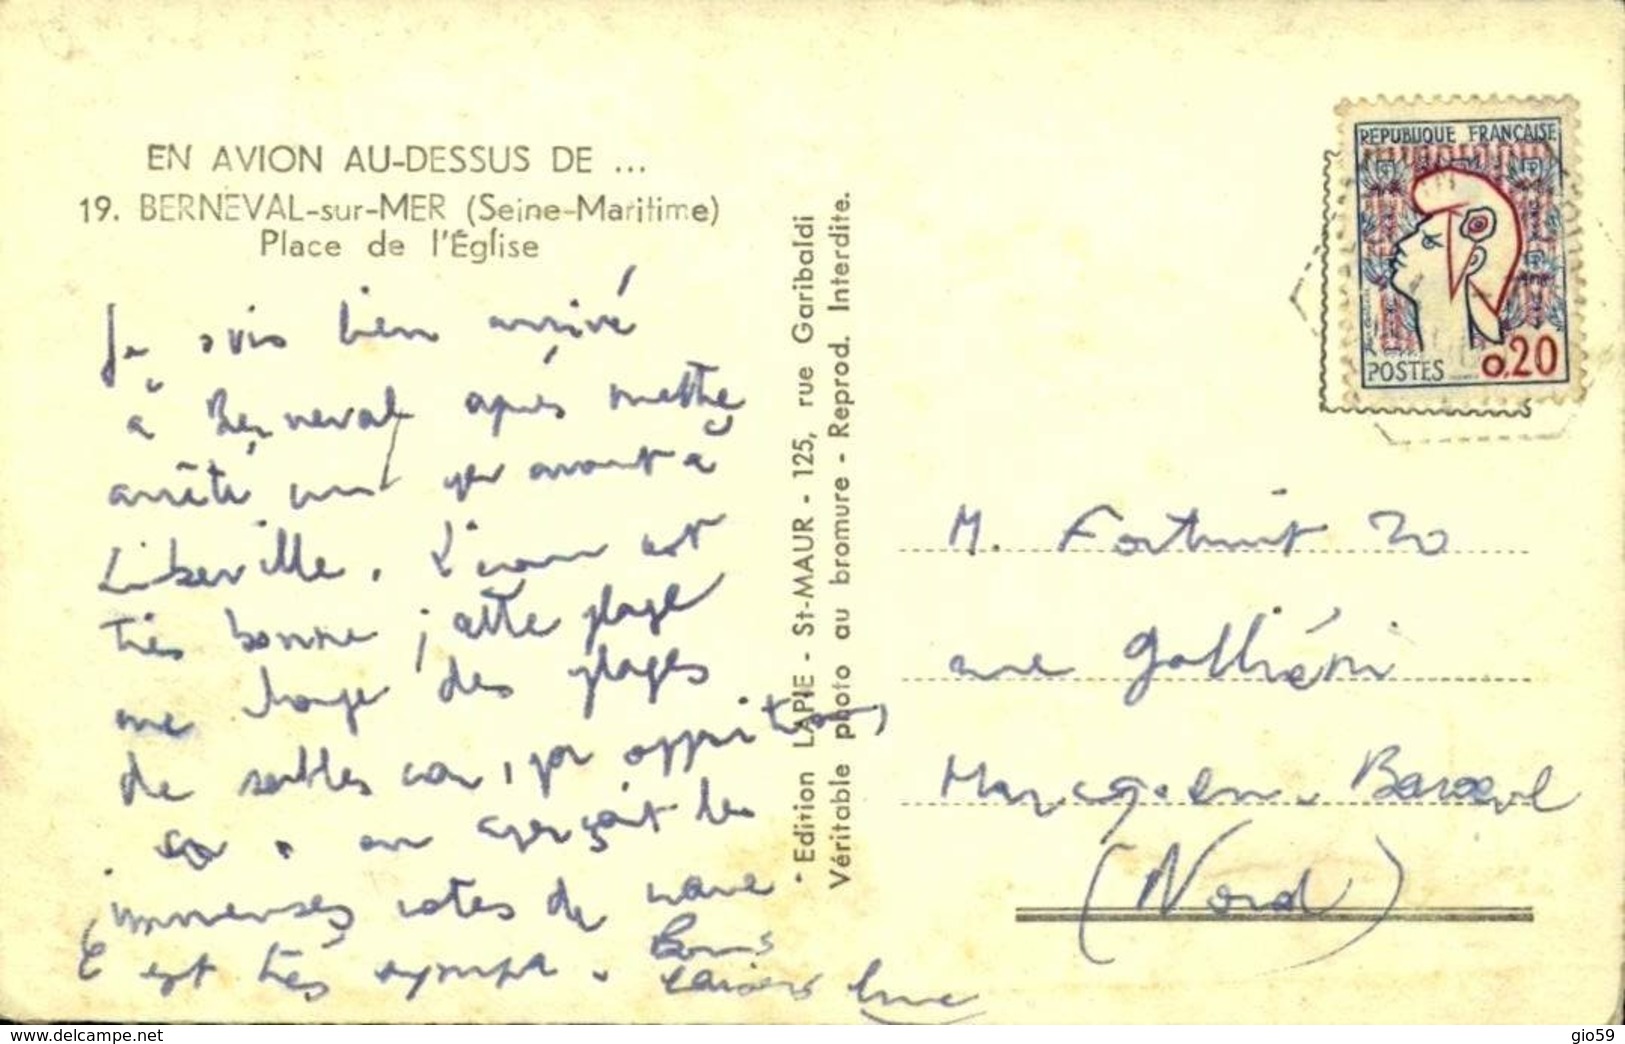 EN AVION AU-DESSUS DE ...
19. BERNEVAL-sur-MER (Seine-Maritime)
Place de l'Église
Je suis bien arrivé
à Berneval après m'être
arrêté avant à
Liberville. L'eau est
très bonne ; cette plage
me change des plages
de sables car, par opposition,
on aperçoit les
immenses côtes de
C'est très sympa. Bons
baisers Luc
- Edition LAPIE - St-MAUR - 125, rue Garibaldi
Véritable photo au bromure - Reprod. Interdite.
REPUBLIQUE FRANÇAISE
POSTES 0,20
M. Fortuit 20
rue Galliéni
Marcq-en-Baroeul
(Nord)
gio59
www.delcampe.net